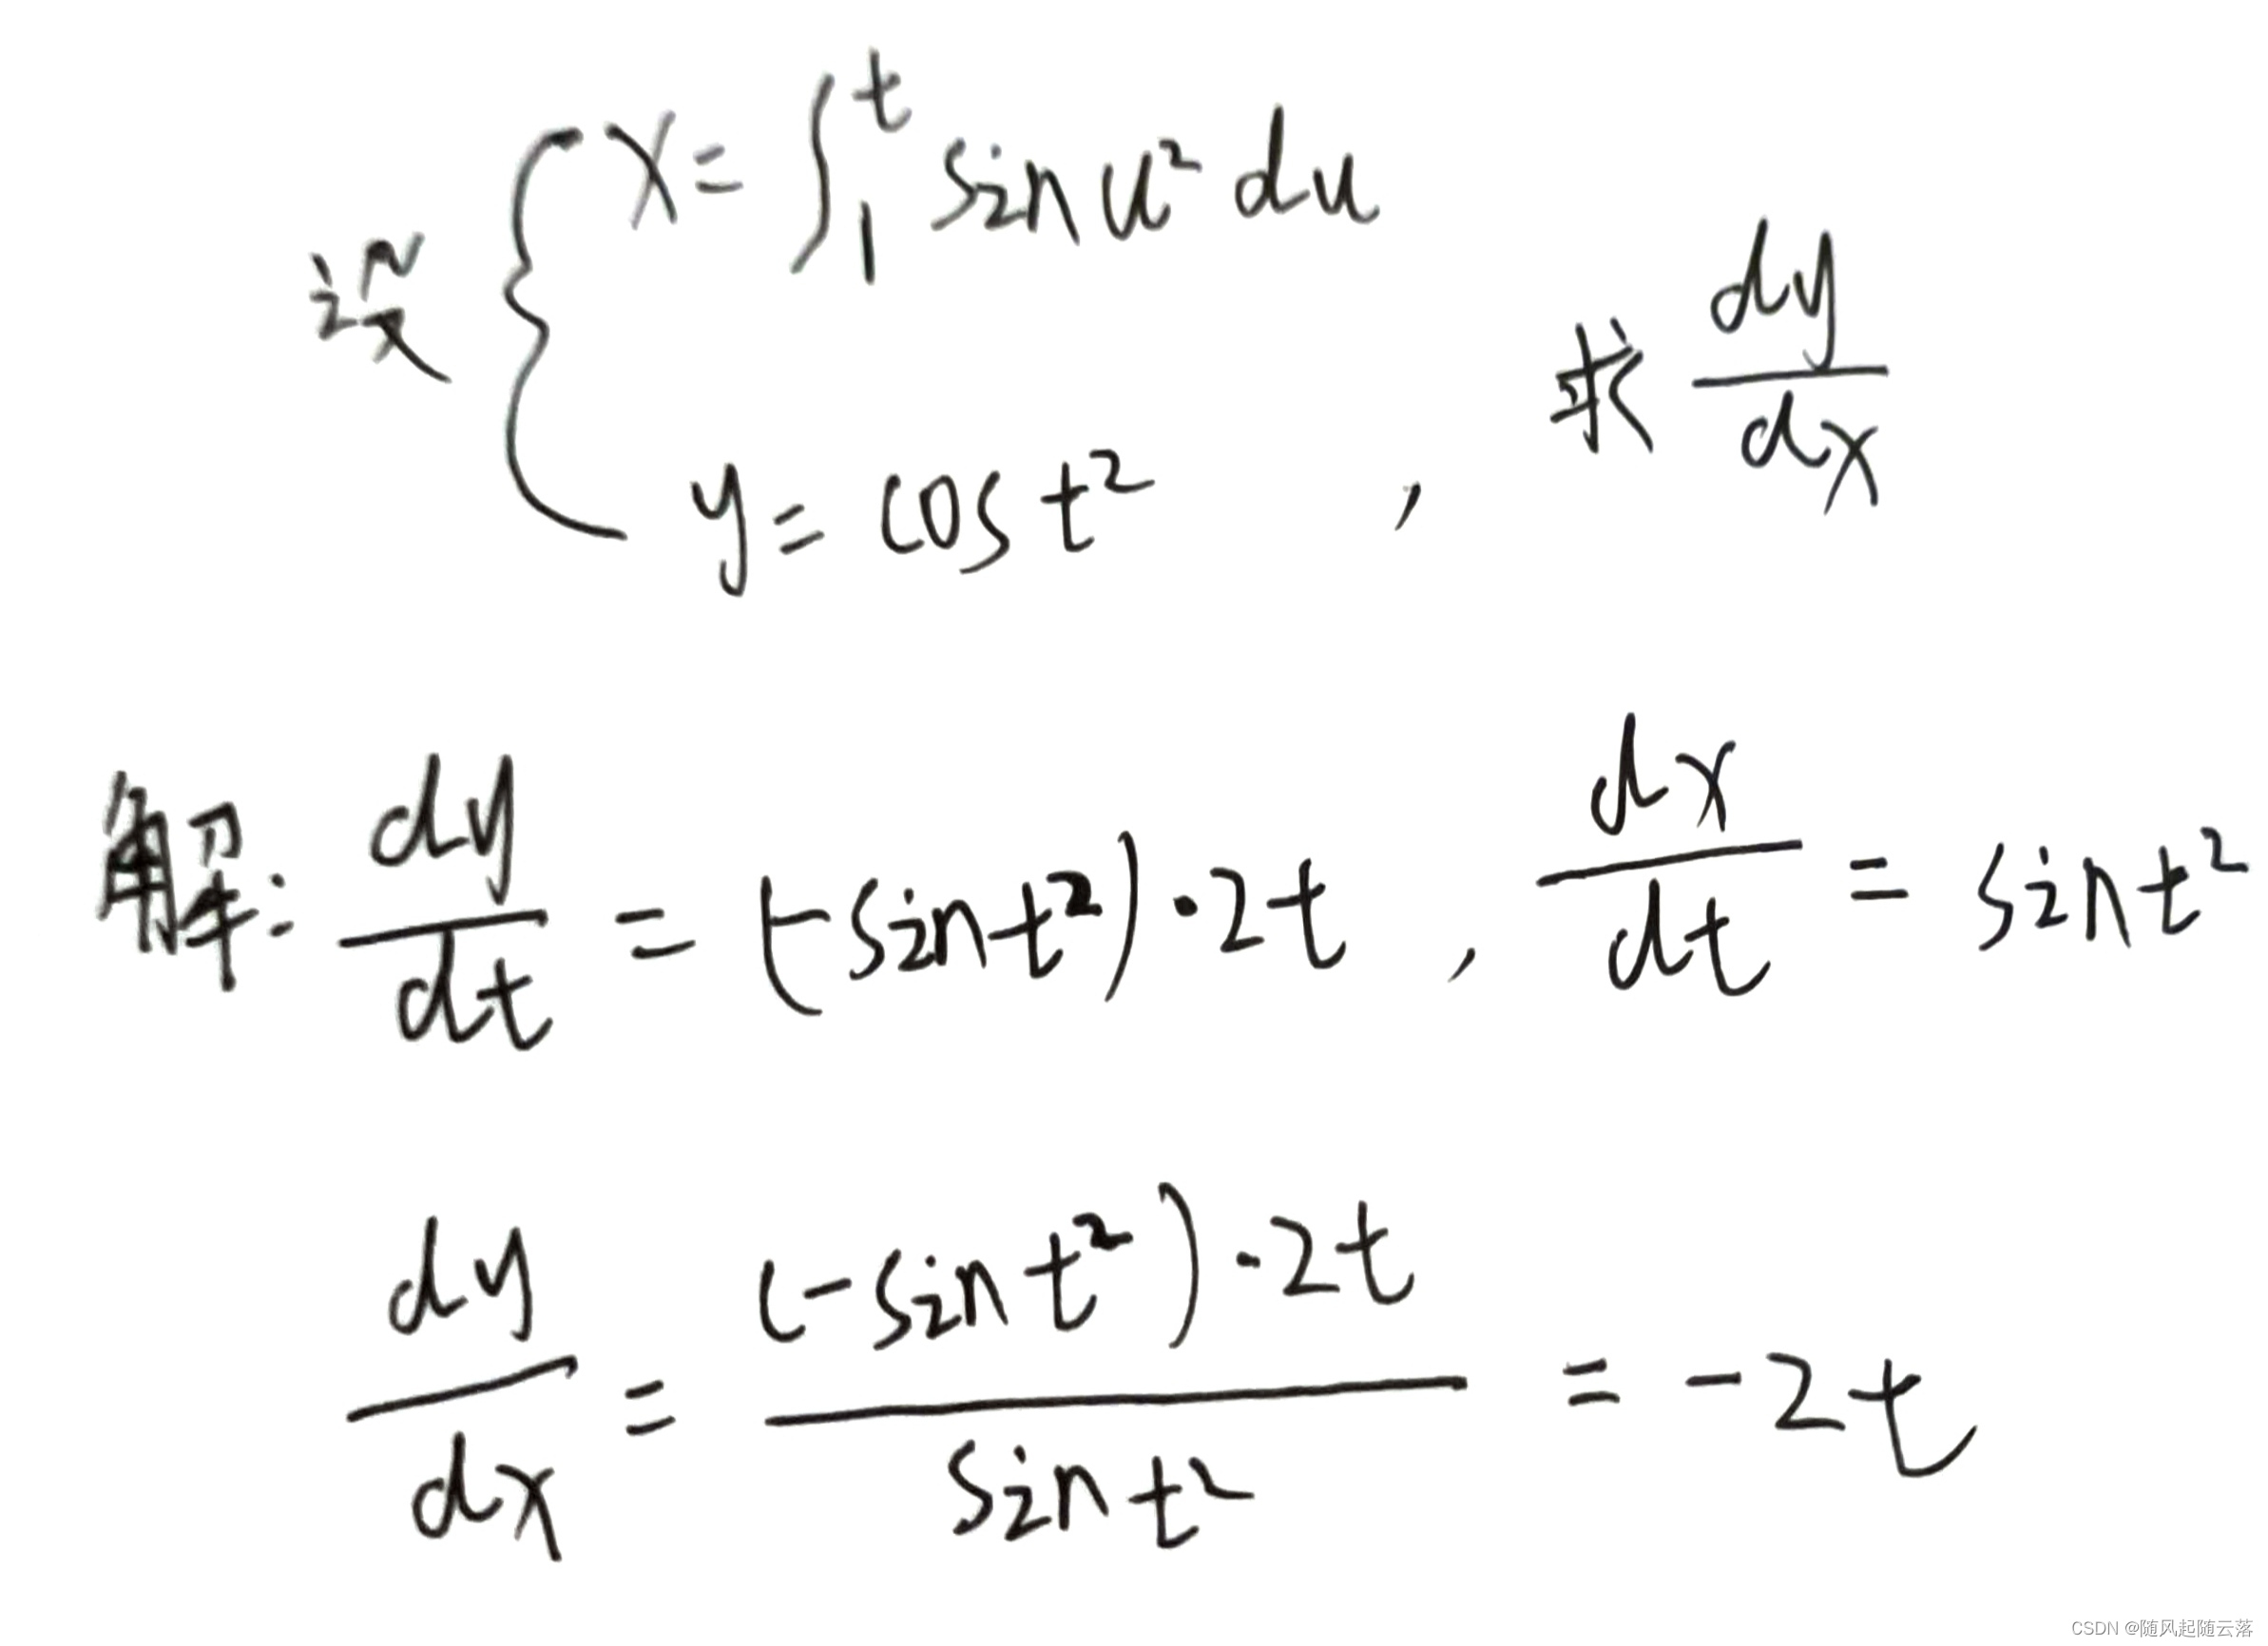 设 { x = ∫₁ᵗ sin u² du
y = cos t² , 求 dy/dx
解: dy/dt = (-sin t²)·2t , dx/dt = sin t²
dy/dx = (-sin t²)·2t / sin t² = -2t
CSDN @随风起随云落